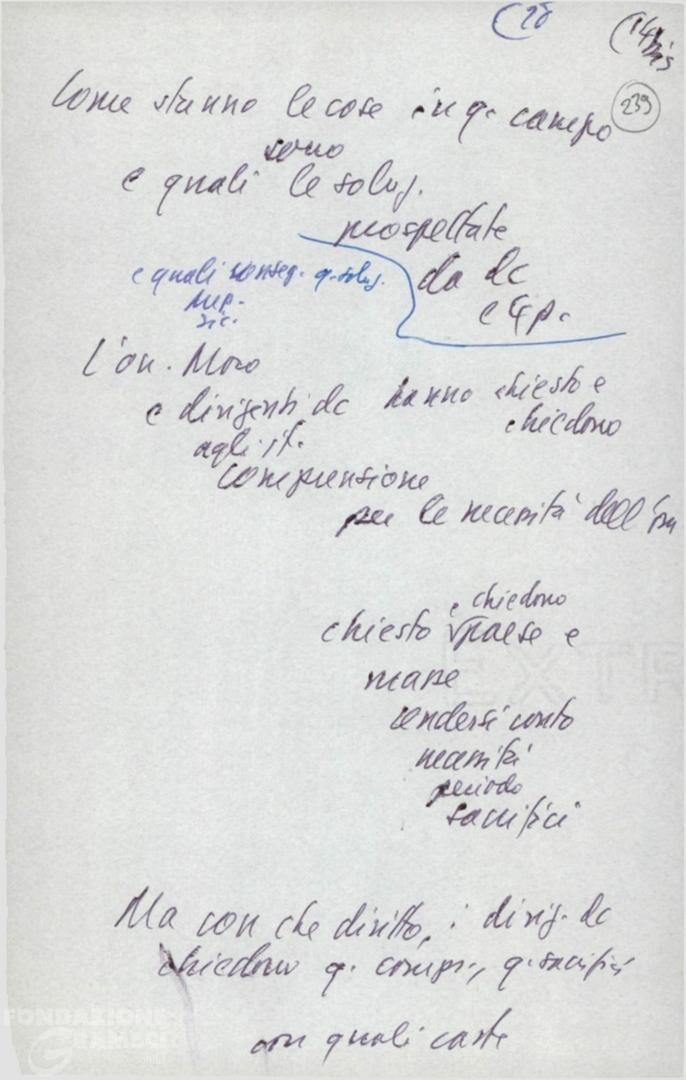 (28
(14 bis
239
Come stanno le cose in q. campo
sono
e quali le soluz.
prospettate
da dc
e
e quali conseg. q. soluz.
sic.
L'on. Moro
e dirigenti dc hanno chiesto e
chiedono
agli it.
comprensione
per le necessità dell'
e chiedono
chiesto paese e
masse
rendersi conto
necessità
periodo
sacrifici
Ma con che diritto, i dirig. dc
chiedono q. compr., q. sacrifici
con quali carte
FONDAZIONE
GRAMSCI
EXTR